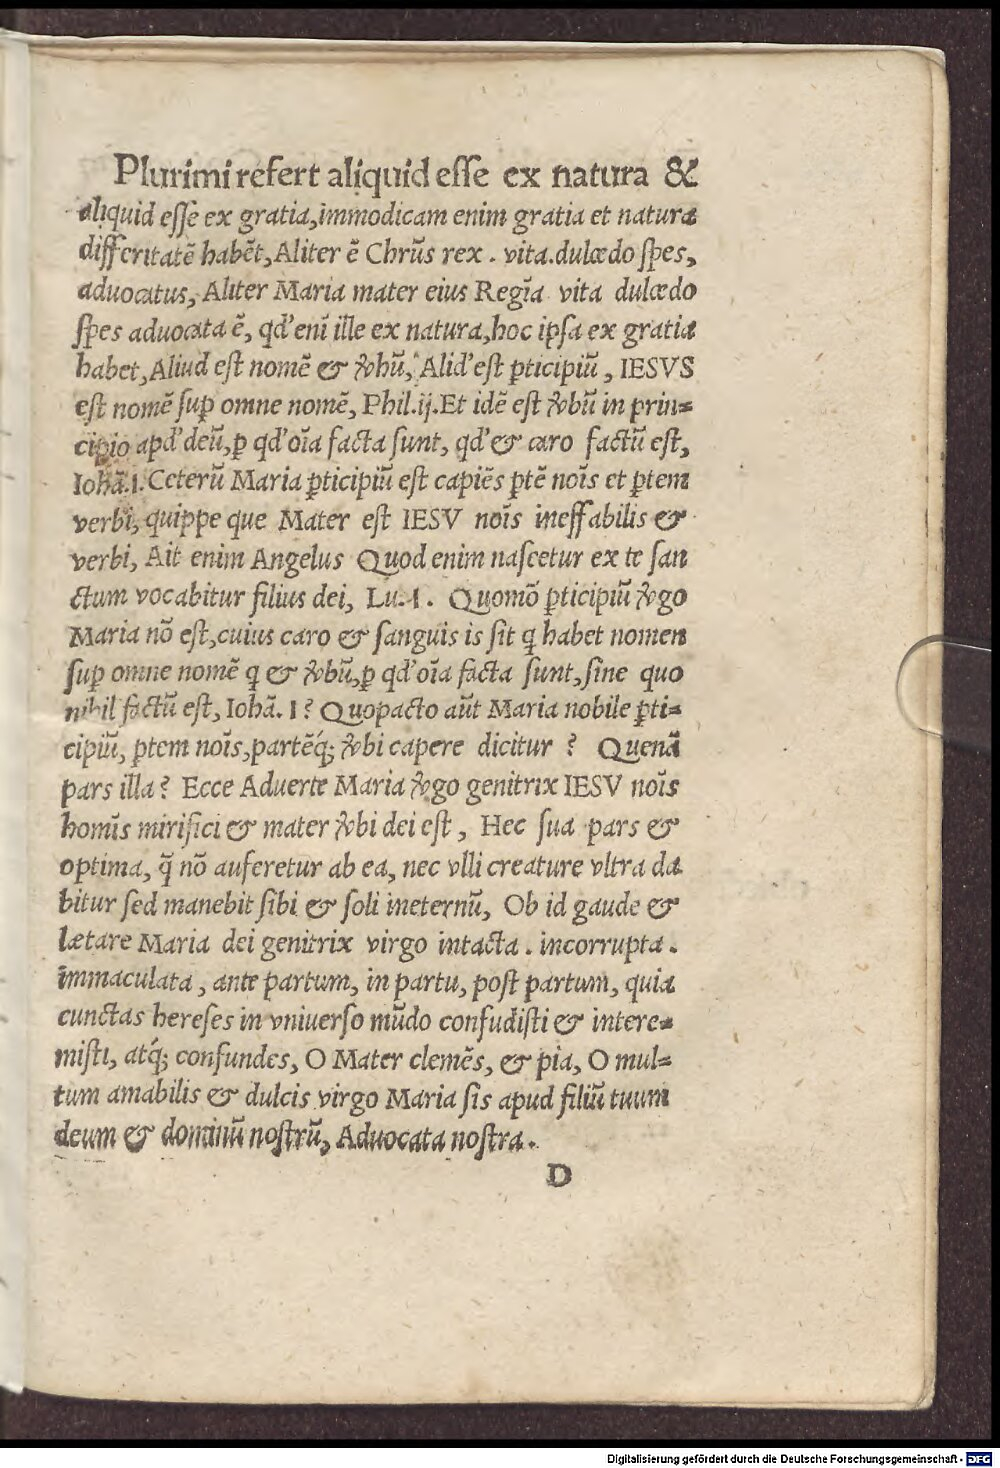 Plurimi refert aliquid eſſe ex natura &
aliquid eſſe ex gratia, immodicam enim gratia et natura
differitatē habēt, Aliter ē Chrūs rex . vita. dulcedo ſpes,
aduocatus, Aliter Maria mater eius Regīa vita dulcedo
ſpes aduocata ē, qd' enī ille ex natura, hoc ipſa ex gratia
habet, Aliud eſt nomē & ꝟbū, Alid' eſt ꝑticipiū, IESVS
eſt nomē ſuꝑ omne nomē, Phil. ij. Et idē eſt ꝟbū in prin=
cipio apd' deū, ꝑ qd' oīa facta ſunt, qd' & caro factū eſt,
Iohā. 1. Ceterū Maria ꝑticipiū eſt capiēs ꝑtē noīs et ꝑtem
verbi, quippe que Mater eſt IESV noīs ineffabilis &
verbi, Ait enim Angelus Quod enim naſcetur ex te ſan
ctum vocabitur filius dei, Lu. 1. Quomō ꝑticipiū ꝟgo
Maria nō eſt, cuius caro & ſanguis is ſit q habet nomen
ſuꝑ omne nomē q & ꝟbū, ꝑ qd' oīa facta ſunt, ſine quo
nihil factū eſt, Iohā. I ? Quopacto aūt Maria nobile ꝑti=
cipiū, ꝑtem noīs, partēq́; ꝟbi capere dicitur ? Quenā
pars illa ? Ecce Aduerte Maria ꝟgo genitrix IESV noīs
homīs mirifici & mater ꝟbi dei eſt, Hec ſua pars &
optima, q̄ nō auferetur ab ea, nec vlli creature vltra da
bitur ſed manebit ſibi & ſoli ineternū, Ob id gaude &
lætare Maria dei genitrix virgo intacta . incorrupta .
immaculata, ante partum, in partu, poſt partum, quia
cunctas hereſes in vniuerſo mūdo confudiſti & intere=
miſti, atq́; confundes, O Mater clemēs, & pia, O mul=
tum amabilis & dulcis virgo Maria ſis apud filiū tuum
deum & dominū noſtrū, Aduocata noſtra .
D
Digitalisierung gefördert durch die Deutsche Forschungsgemeinschaft - DFG